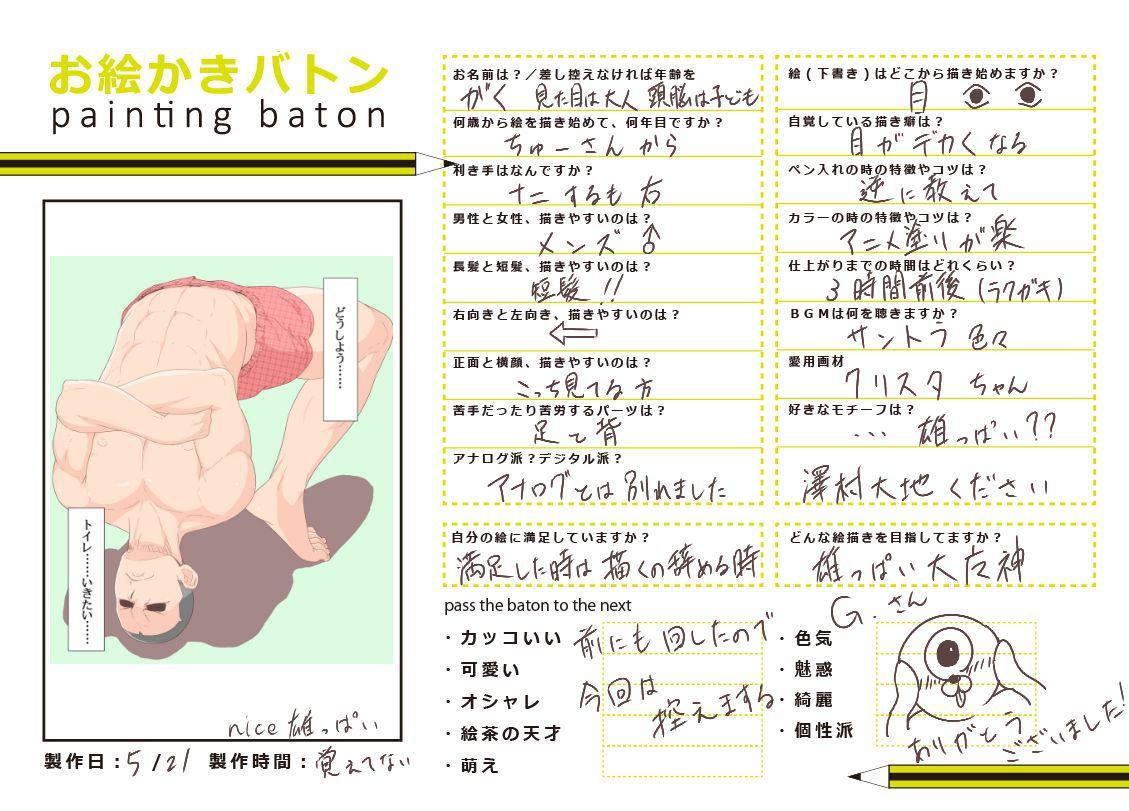 お絵かきバトン
painting baton
どうしよう……
トイレ……いきたい……
nice 雄っぱい
製作日：5/21　製作時間：覚えてない
お名前は？／差し控えなければ年齢を
がく　見た目は大人 頭脳は子ども
何歳から絵を描き始めて、何年目ですか？
ちゅーさんから
利き手はなんですか？
ナニするも右
男性と女性、描きやすいのは？
メンズ♂
長髪と短髪、描きやすいのは？
短髪!!
右向きと左向き、描きやすいのは？
⇐
正面と横顔、描きやすいのは？
こっち見てる方
苦手だったり苦労するパーツは？
足と背
アナログ派？デジタル派？
アナログとは別れました
絵(下書き)はどこから描き始めますか？
目
自覚している描き癖は？
目がデカくなる
ペン入れの時の特徴やコツは？
逆に教えて
カラーの時の特徴やコツは？
アニメ塗りが楽
仕上がりまでの時間はどれくらい？
3時間前後(ラクガキ)
ＢＧＭは何を聴きますか？
サントラ 色々
愛用画材
クリスタちゃん
好きなモチーフは？
… 雄っぱい??
澤村大地ください
自分の絵に満足していますか？
満足した時は描くの辞める時
どんな絵描きを目指してますか？
雄っぱい大明神
pass the baton to the next
・カッコいい
・可愛い
・オシャレ
・絵茶の天才
・萌え
前にも回したので
今回は
控えまする
・色気
・魅惑
・綺麗
・個性派
G.さん
ありがとう
ございました!